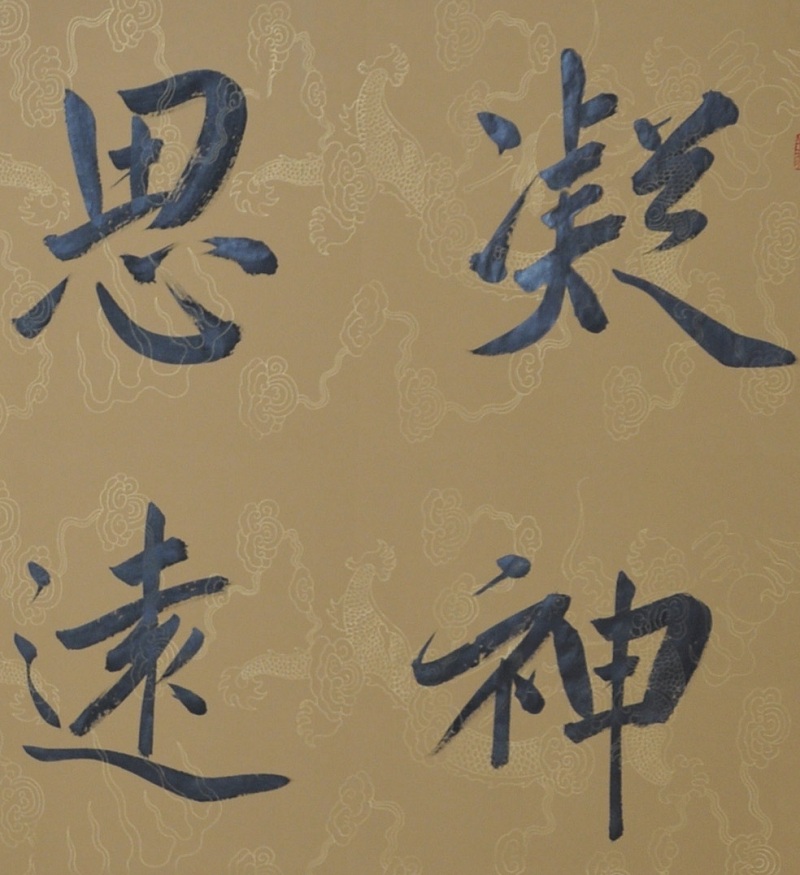 凝神
思遠